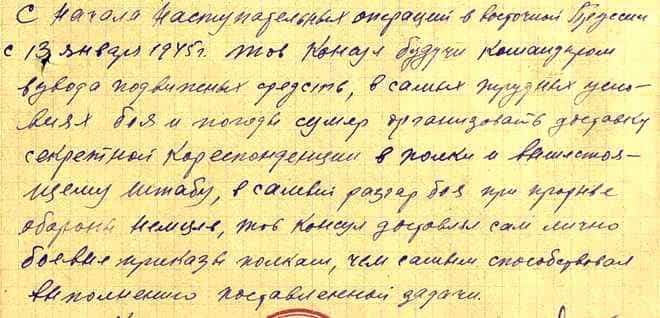 С начала наступательных операций в восточной Пруссии
с 13 января 1945г. тов Консул будучи командиром
взвода подвижных средств, в самых трудных усло-
виях боя и погоды сумел организовать доставку
секретной кореспонденции в полки и вышестоя-
щему штабу, в самый разгар боя при прорыве
обороны немцев, тов Консул доставлял сам лично
боевые приказы полкам, чем самым способствовал
выполнению поставленной задачи.